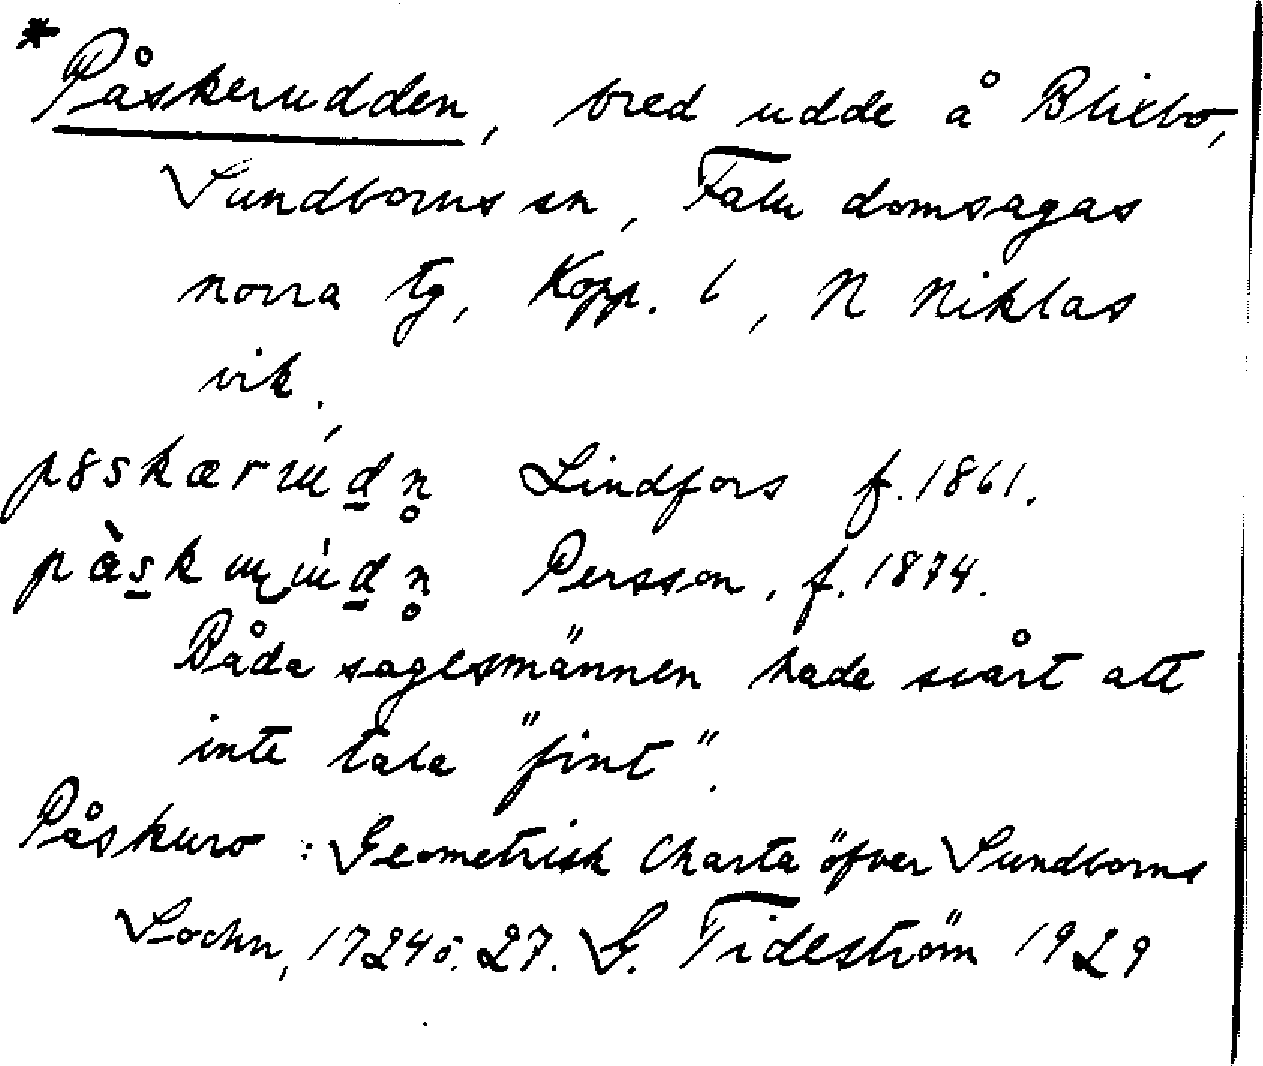 * Påskerudden, bred udde å Blixbo,
Sundborns sn, Falu domsagas
norra tg, Kopp. l, N Niklas
vik.
Lindfors f. 1861.
Persson, f. 1874.
Båda sagesmännen hade svårt att
inte tala "fint".
Påskuro: Geometrisk Charta öfver Sundborns
Sochn, 1724 o. 27. G. Tideström 1929